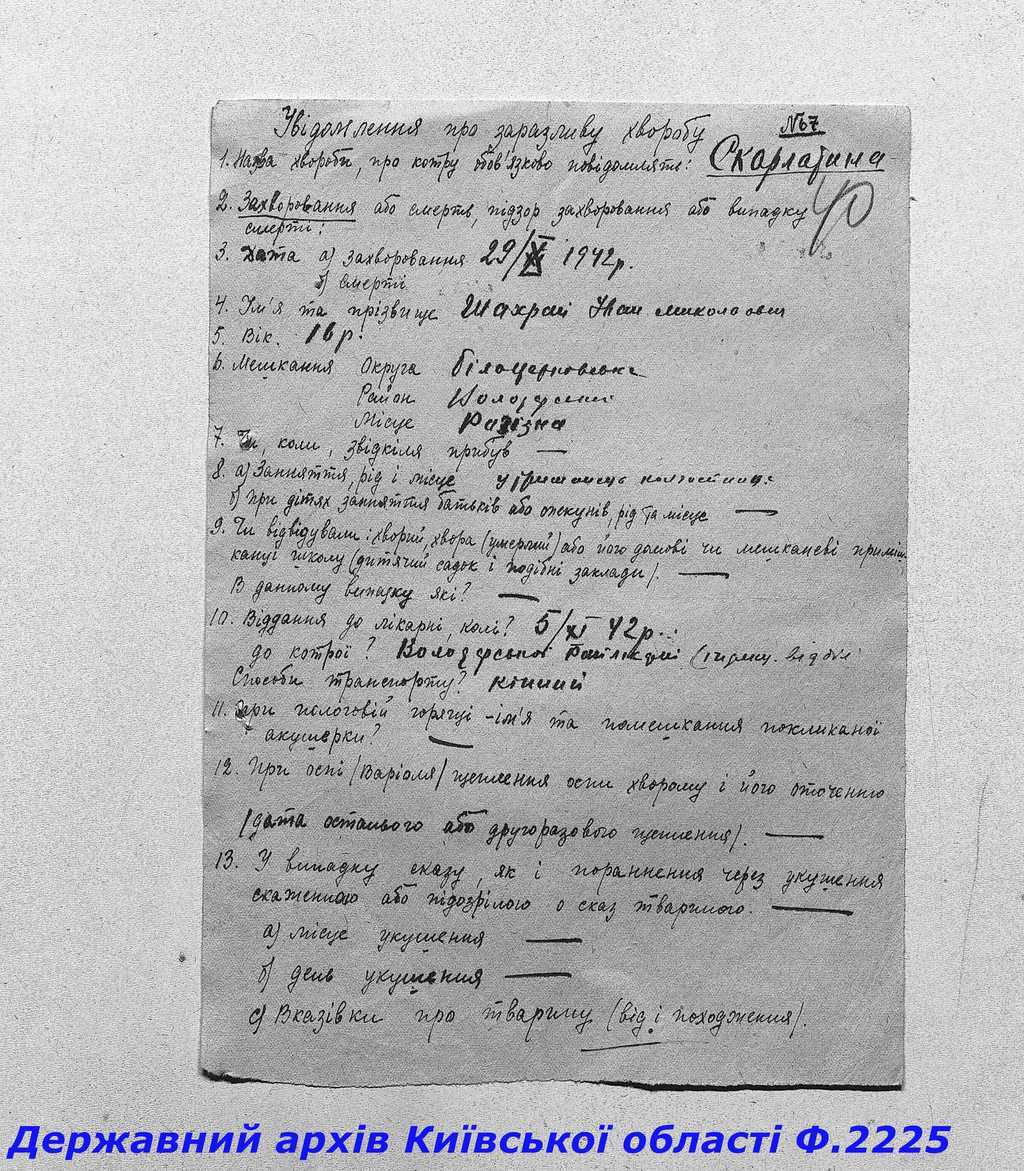 Увідомлення про заразливу хворобу №67
1. Назва хвороби, про котру обов'язково повідомляти: Скарлатина
40
2. Захворовання або смерть, підзор захворовання або випадку
смерті:
3. Дата а) Захворовання 29/XI 1942р.
б) Смерті
4. Ім'я та прізвище Шахрай Іван Миколаович
5. Вік. 16 р.
6. Мешкання Округа Білоцерковська
Район Володарський
Місце
7. Чи, коли, звідкіля прибув —
8. а) Заняття, рід і місце
б) При дітях заняття батьків або опекунів, рід та місце —
9. Чи відвідували: хворий, хвора (умерлий) або його домові чи мешканеві приміш-
канці школу (дитячий садок і подібні заклади). —
В данному випадку які? —
10. Віддання до лікарні, колі? 5/XI 42р.
до котрої? Володарської відділ
Способи транспорту? кінний
11. При пологовій горячці - ім'я та помешкання покликаної
акушерки? —
12. При оспі /Варіоля/ щеплення оспи хворому і його оточенню
/дата останього або другоразового щеплення/. —
13. У випадку сказу, як і поранення через укушення
скаженного або підозрілого о сказ тваринного. —
а) місце укушення —
б) день укушення —
с) Вказівки про тварину (від і походження).
Державний архів Київської області Ф.2225